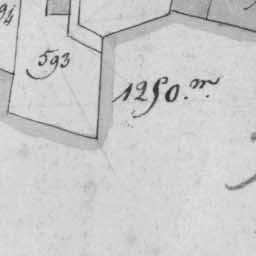 94
593
1250.m.